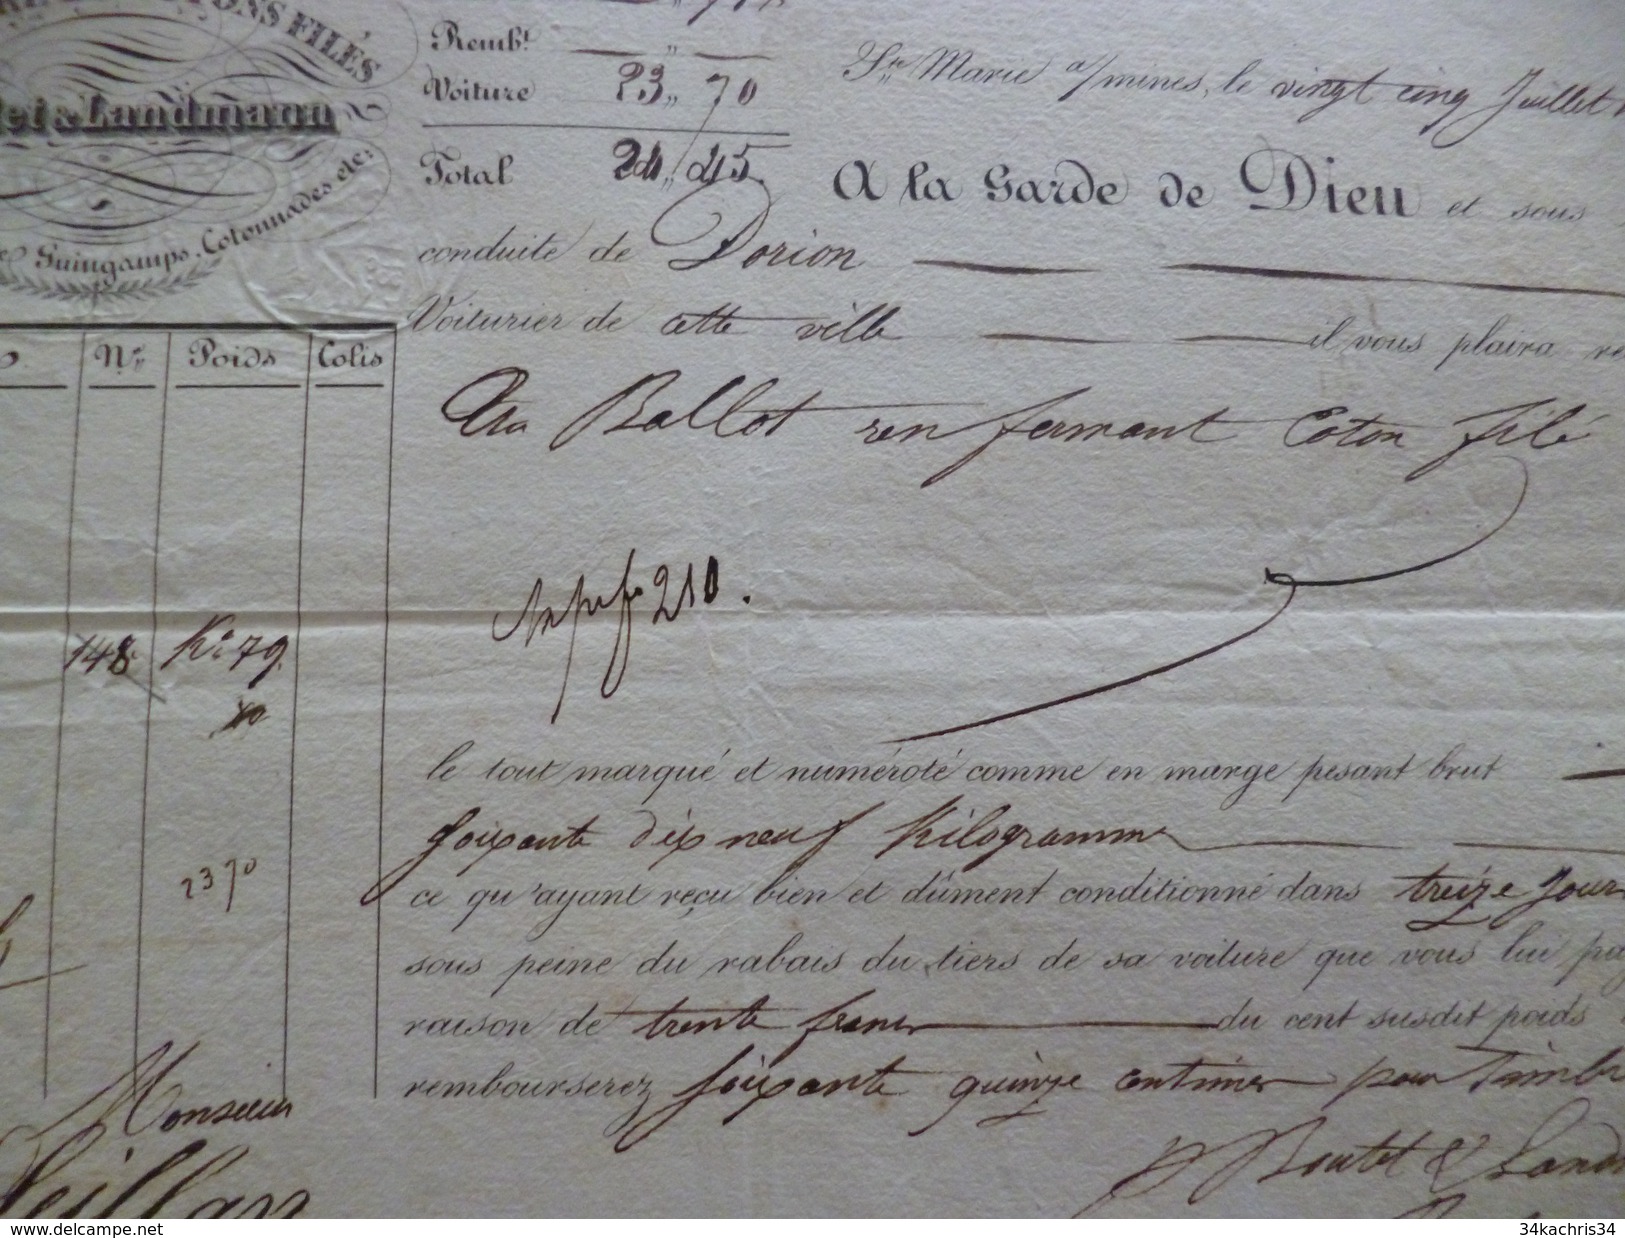 FILÉS
& Landmann
Guingamps, Cotonnades etc.
Rembt. „
Voiture 23 „ 70
Total 24 „ 45
Ste Marie a/mines, le vingt cinq Juillet
A la Garde de Dieu et sous
conduite de Dorion
Voiturier de cette ville il vous plaira
Nos Poids Colis
Un Ballot renfermant Coton filé
210.
148 Ko 79
le tout marqué et numéroté comme en marge pesant brut
soixante dix neuf Kilogrammes
23 70
ce qu'ayant reçu bien et dûment conditionné dans treize Jour
sous peine du rabais du tiers de sa voiture que vous lui
raison de trente francs du cent susdit poids
rembourserez soixante quinze centimes pour Timbr
Monsieur
p Boutet & Land
www.delcampe.net
34kachris34